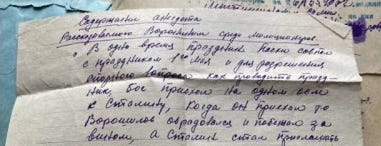 Содержание анекдота
Рассказанного Ворониным среди милиционеров
" В одно время праздник пасхи совпал
с праздником 1го мая и для разрешения
спорного вопроса как проводить празд-
ник бог приехал на одном осле
к Сталину, когда он приехал то
Ворошилов обрадовался и побежал за
вином, а Сталин стал приглашать